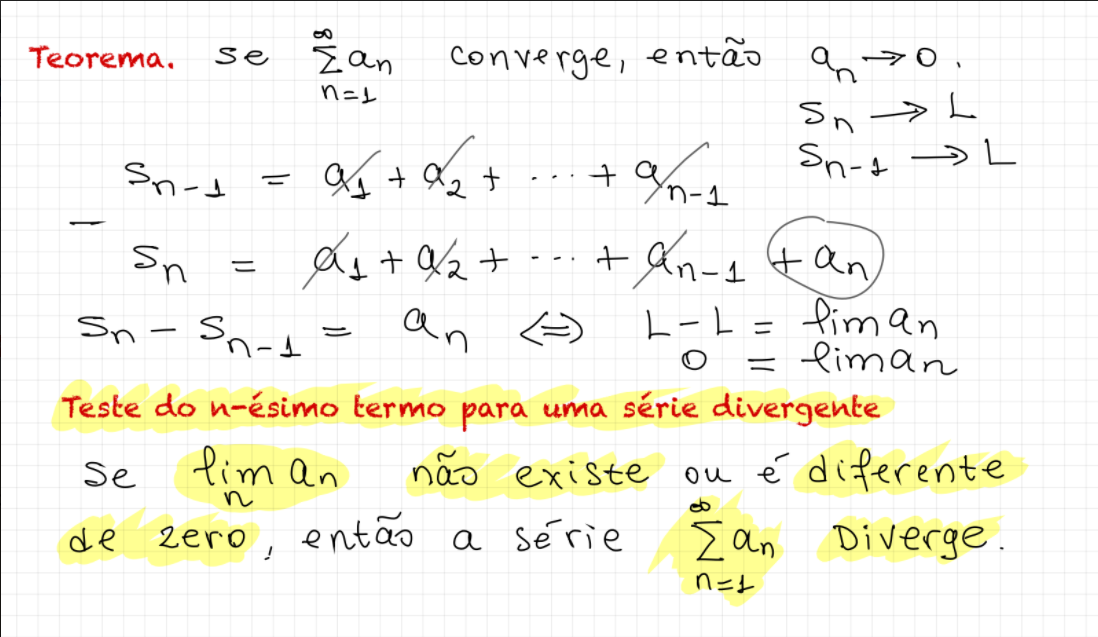 Teorema. se ∞∑n=1 an converge, então an → 0.
sn → L
sn-1 → L
sn-1 = a1 + a2 + ... + an-1
−
sn = a1 + a2 + ... + an-1 + an
sn − sn-1 = an ⇔ L − L = lim an
0 = lim an
Teste do n-ésimo termo para uma série divergente
se lim n an não existe ou é diferente
de zero, então a série ∞∑n=1 an Diverge.